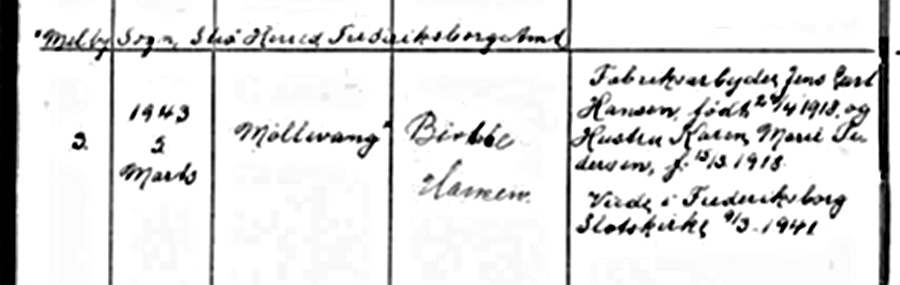 Melby Sogn, Strø Herred Frederiksborg Amt
3.
1943
3
Marts
Möllevang
Birthe
Hansen.
Fabriksarbejder Jens Carl
Hansen, født 2/4 1918, og
Hustru Karen Marie Pe-
dersen, f. 15/3 1918.
Viede i Frederiksborg
Slotskirke 9/3 1941